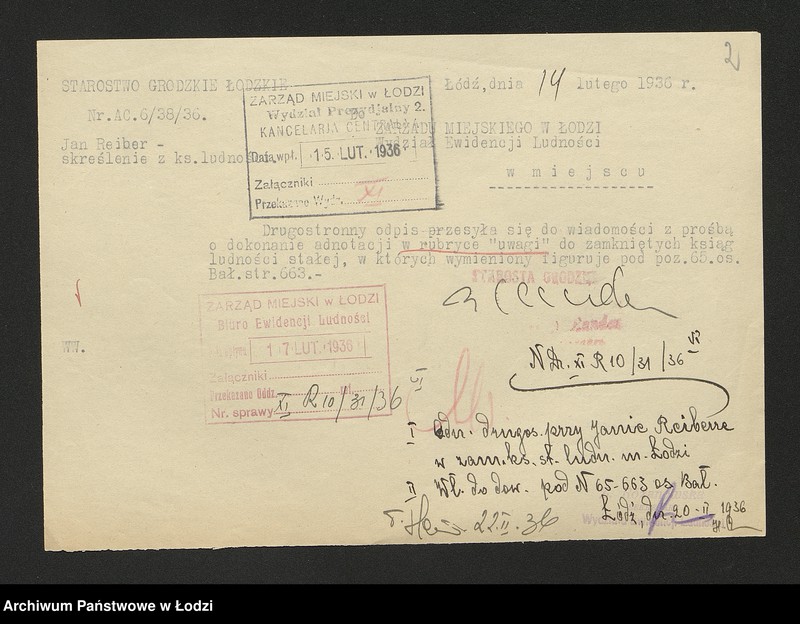 2
STAROSTWO GRODZKIE ŁÓDZKIE
Łódź,dnia 14 lutego 1936 r.
Nr.AC.6/38/36.
Do
ZARZĄDU MIEJSKIEGO W ŁODZI
Wydział Ewidencji Ludności
Jan Reiber -
skreślenie z ks.ludności
w miejscu
ZARZĄD MIEJSKI w ŁODZI
Wydział Prezydjalny 2.
KANCELARJA CENTRALNA
Data wpł. 15. LUT. 1936
Załączniki
Przekazano Wydz. XI
Drugostronny odpis przesyła się do wiadomości z prośbą
o dokonanie adnotacji w rubryce "uwagi" do zamkniętych ksiąg
ludności stałej, w których wymieniony figuruje pod poz.65.os.
Bał.str.663.-
STAROSTA GRODZKI
ZARZĄD MIEJSKI w ŁODZI
Biuro Ewidencji Ludności
17 LUT. 1936
Załączniki
Przekazano Oddz.
Nr. sprawy XI R 10/31/36
WW.
N Dr. XI R 10/31/36
I Odn. drugos. przy Janie Reiberze
w zam. ks. st. ludn. m. Łodzi
II Wł. do dow. pod N 65-663 os Bał.
Łódź, dn. 20-II 1936
22 II. 36
Archiwum Państwowe w Łodzi